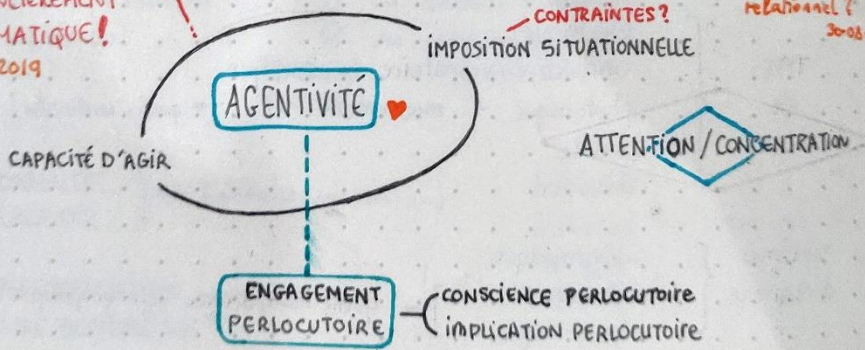 MATIQUE!
2019
CONTRAINTES?
relationnel?
30-08
IMPOSITION SITUATIONNELLE
AGENTIVITÉ
CAPACITÉ D'AGIR
ATTENTION / CONCENTRATION
ENGAGEMENT
PERLOCUTOIRE
CONSCIENCE PERLOCUTOIRE
IMPLICATION PERLOCUTOIRE